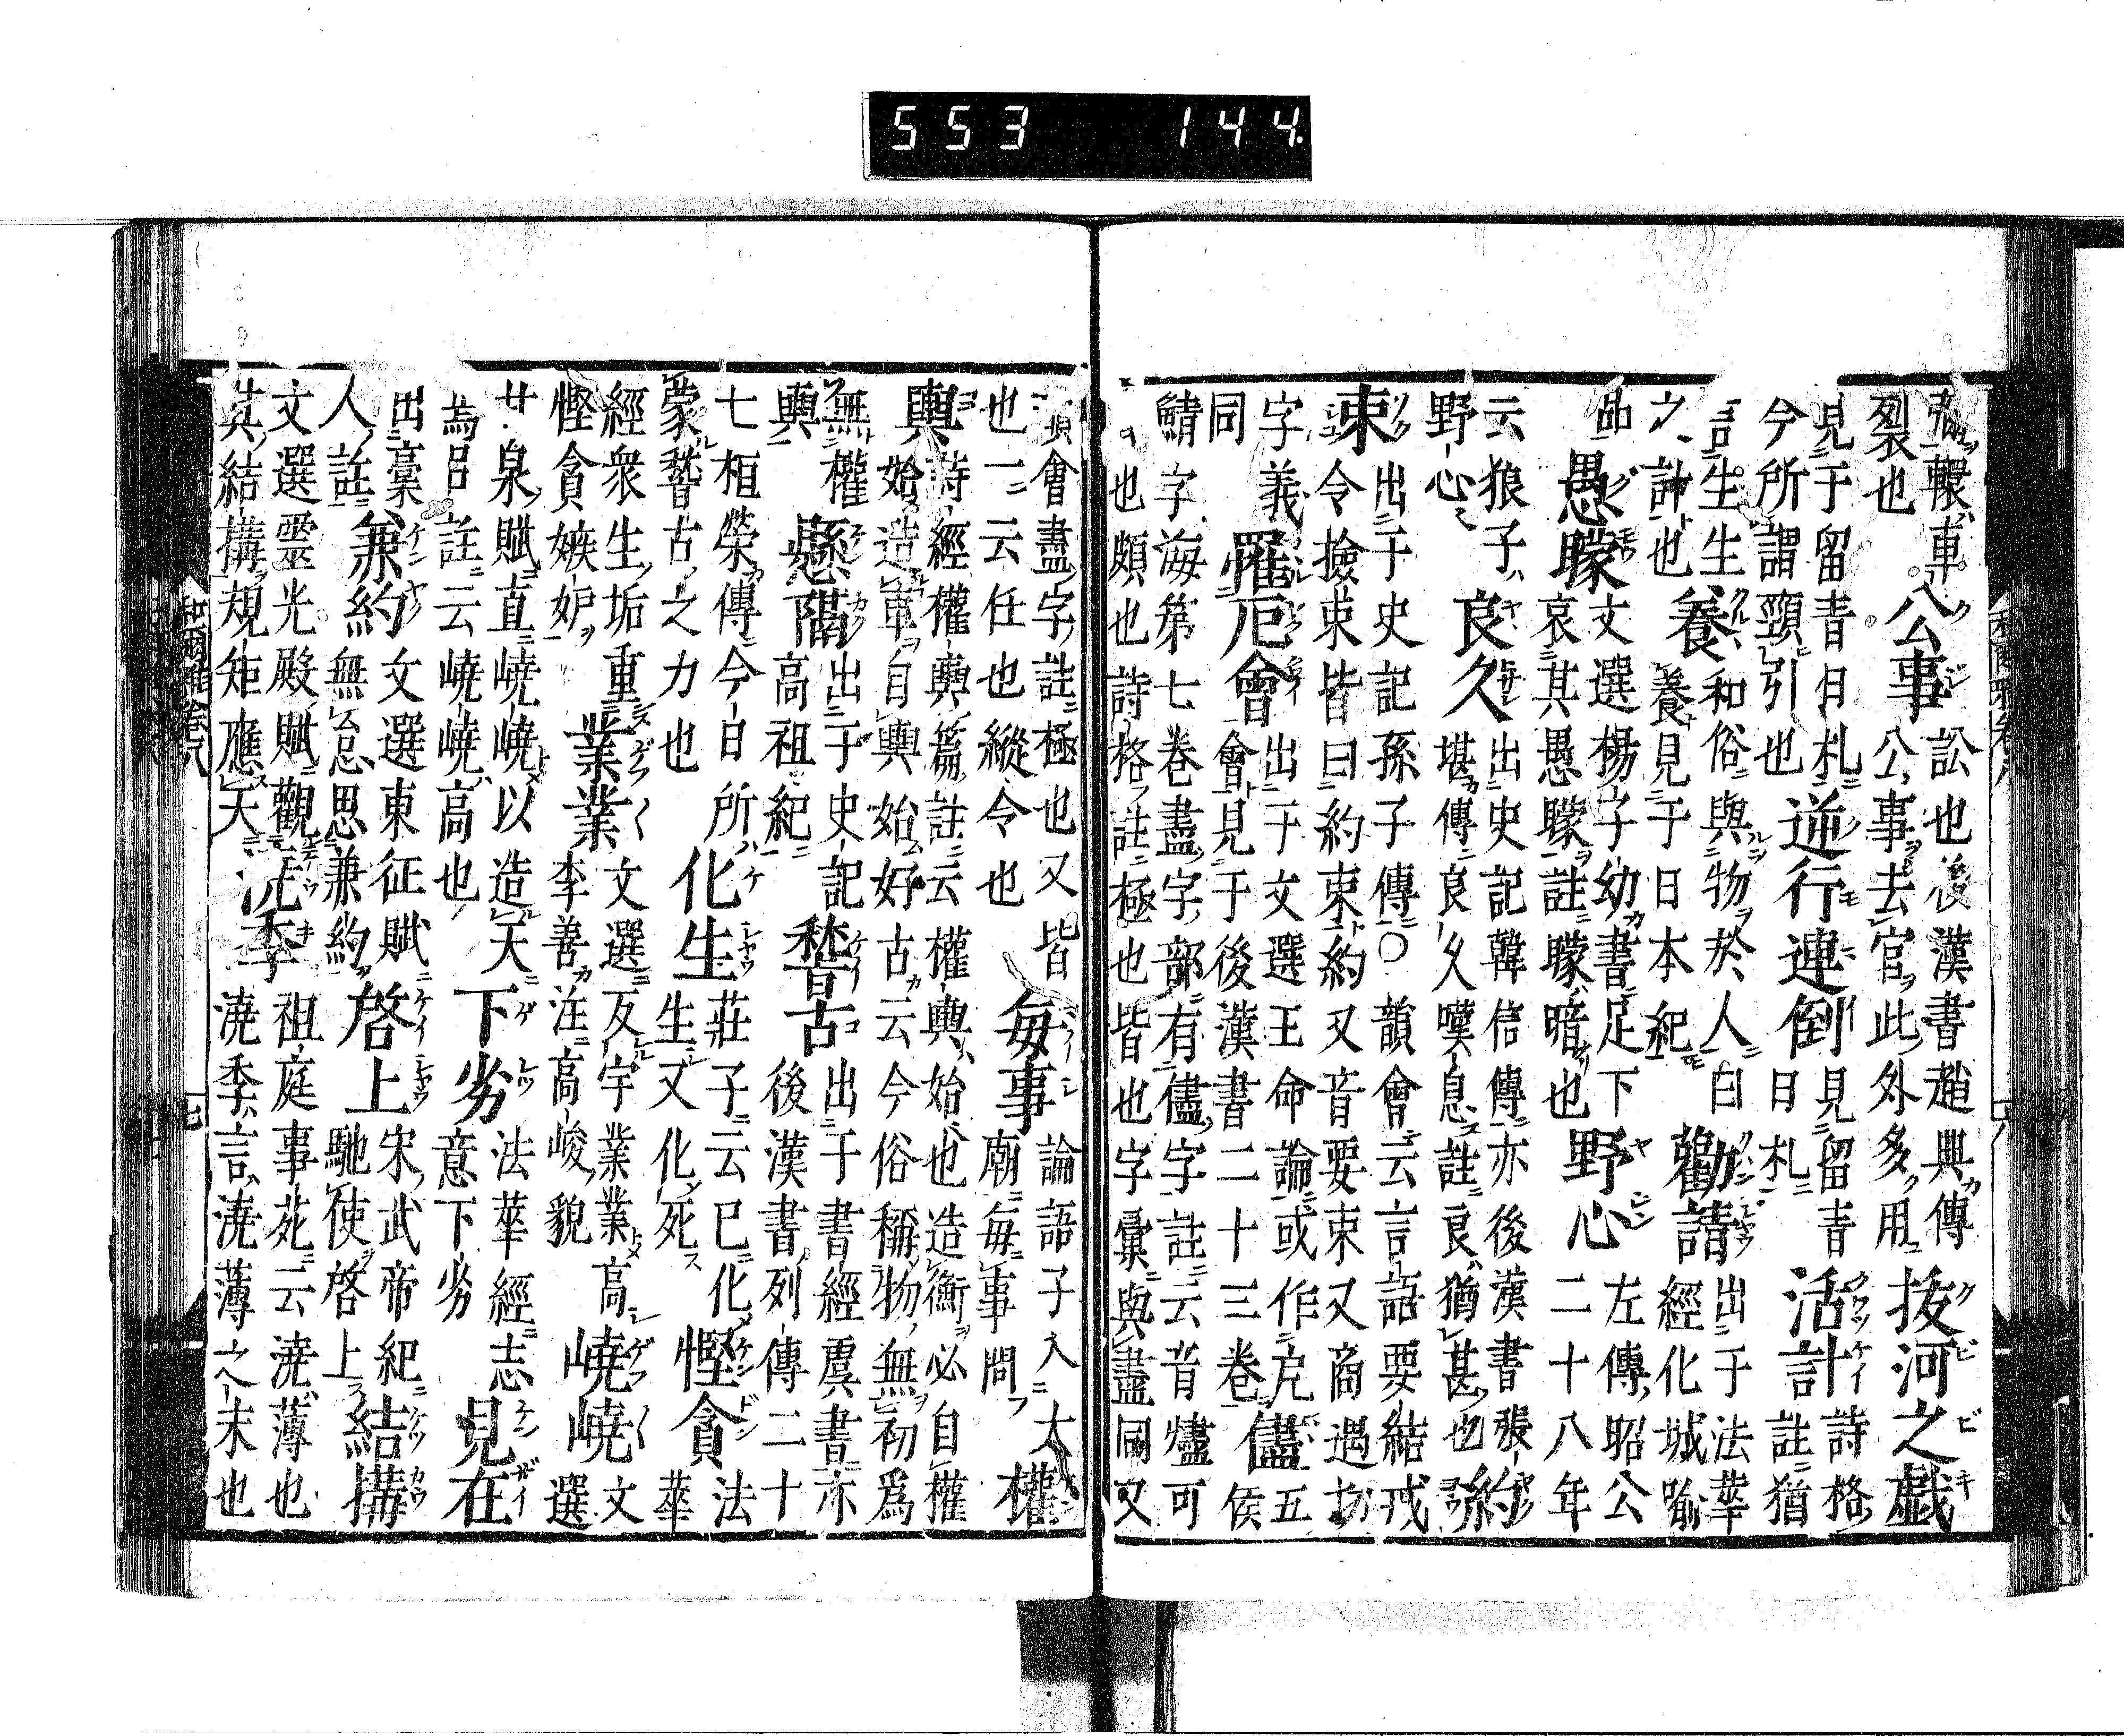 553 144
轘車
裂也
公事
訟也後漢書趙典傳
公事去官此外多用
扱河之戯
見于留青日札
今所謂頸引也
逆行連倒
見留青
日札
活計
詩格
註猶
言生生
之計也
養
和俗與物於人曰
養見于日本紀
勸請
出于法華
經化城喩
品
愚矇
文選楊子幼書足下
哀其愚矇註矇暗也
野心
左傳昭公
二十八年
云狼子
野心
良久
出史記韓信傳亦後漢書張
堪傳良久嘆息註良猶甚也
約
束
出于史記孫子傳○韻會云言語要結戒
令撿束皆曰約束約又音要束又商遇切
字義
同
羅戹會
出于文選王命論或作戹
會見于後漢書二十三卷
儘
五
侯
鯖字海第七巻盡字部有儘字註云音燼可
也頗也詩格註極也皆也字彙與盡同又
韻會盡字註極也又皆
也一云任也縱令也
毎事
論語子入大
廟毎事問
權
輿
詩經權輿篇註云權輿始也造衡必自權
始造車自輿始好古云今俗稱物無初爲
無權
輿
懸隔
出于史記
高祖紀
稽古
出于書經虞書亦
後漢書列傳二十
七桓榮傳今日所
蒙稽古之力也
化生
莊子云已化
生又化死
慳貪
法
華
經衆生垢重
慳貪嫉妒
業業
文選反宇業業高
李善注高峻貌
嶢嶢
文
選
甘泉賦直嶢嶢以造天
爲呂註云嶢嶢高也
下劣
法華經志
意下劣
見在
出稾
人註
兼約
文選東征賦
無怠思兼約
啓上
宋武帝紀
馳使啓上
結搆
文選靈光殿賦觀
其結搆規矩應天
澆季
祖庭事苑云澆薄也
澆季言澆薄之末也
和爾雅卷八
七